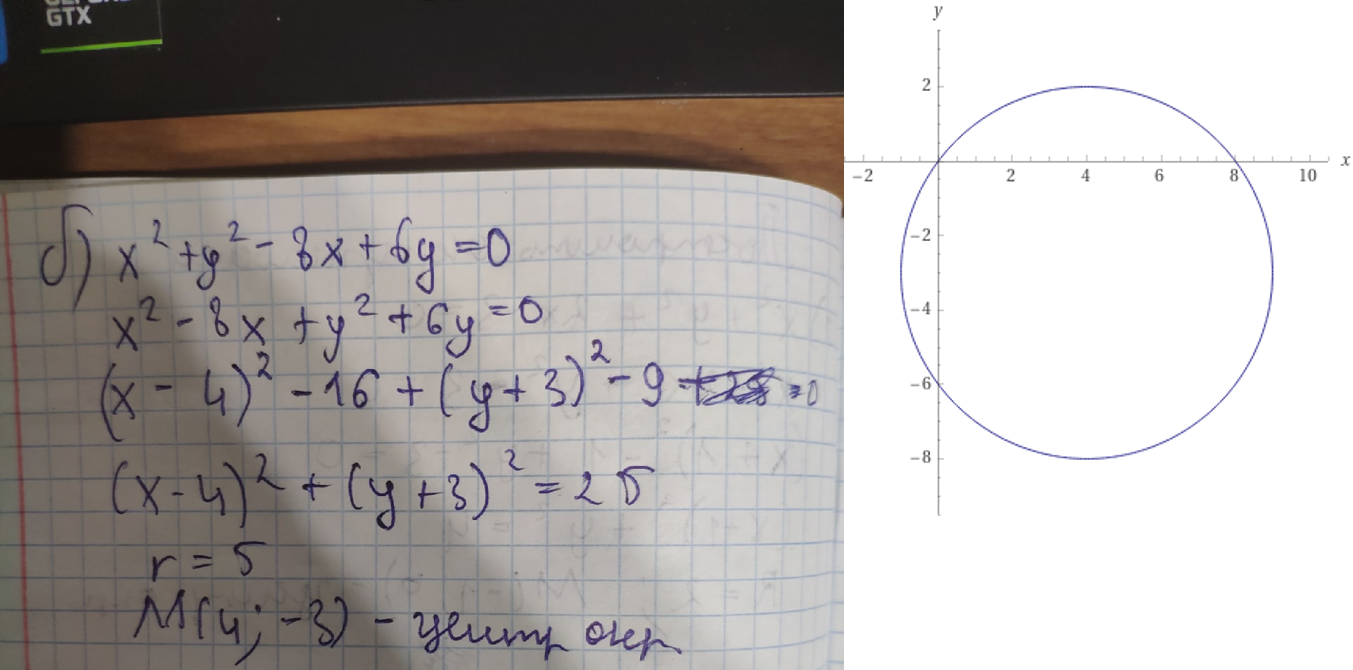 GTX
б) x² + y² - 8x + 6y = 0
x² - 8x + y² + 6y = 0
(x - 4)² - 16 + (y + 3)² - 9 = 0
(x - 4)² + (y + 3)² = 25
r = 5
M(4; -3) - центр окр
y
2
-2 2 4 6 8 10 x
-2
-4
-6
-8